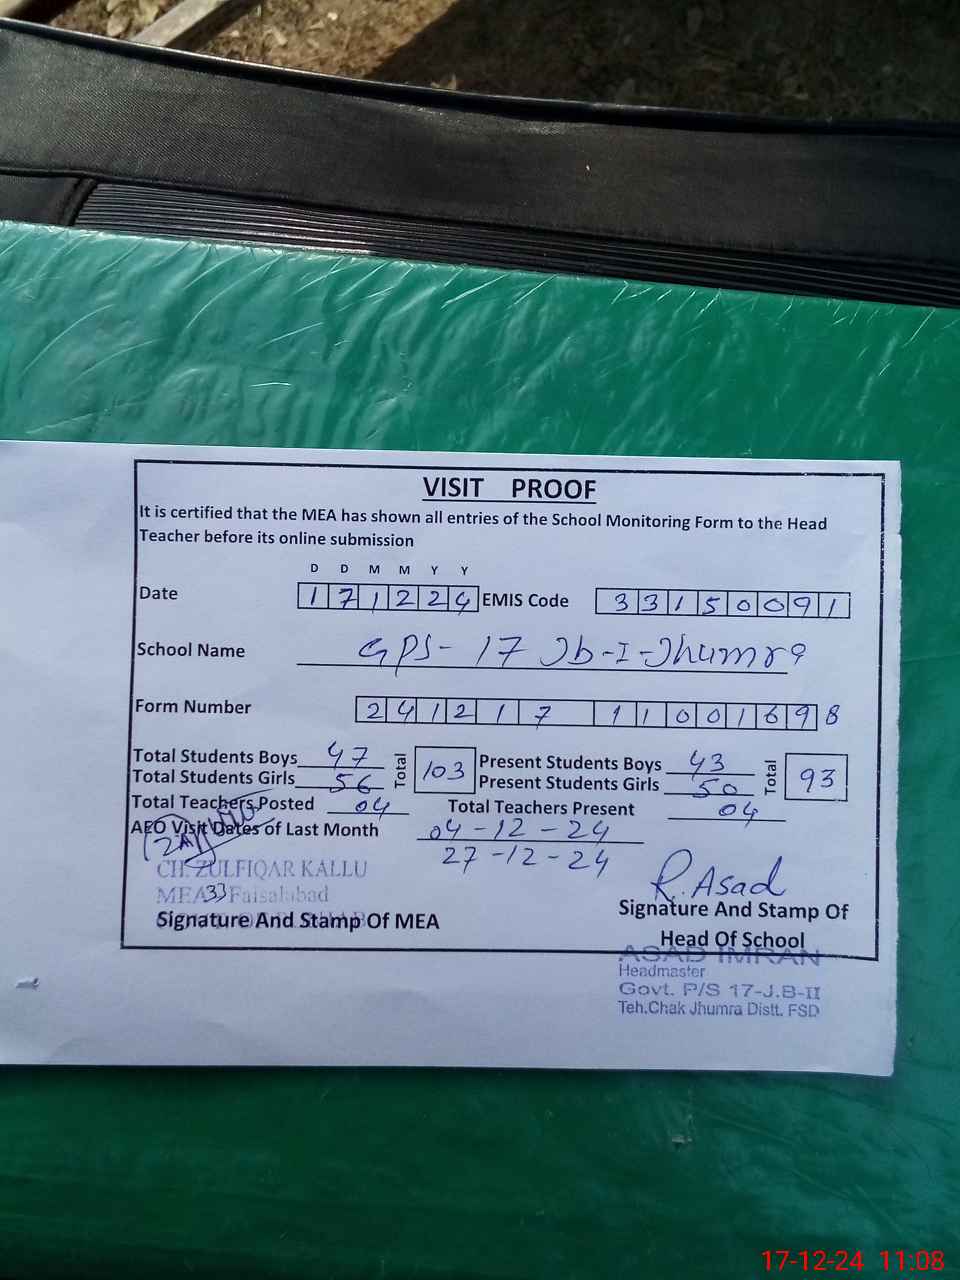 VISIT PROOF
It is certified that the MEA has shown all entries of the School Monitoring Form to the Head
Teacher before its online submission
D D M M Y Y
Date 171224 EMIS Code 33150091
School Name GPS-17 Jb-I-Jhumra
Form Number 241217 11001698
Total Students Boys 47 Total 103 Present Students Boys 43 Total 93
Total Students Girls 56 Present Students Girls 50
Total Teachers Posted 04 Total Teachers Present 04
AEO Visit Dates of Last Month 04-12-24
27-12-24
CH. ZULFIQAR KALLU
MEA 33 Faisalabad
R. Asad
Signature And Stamp Of MEA
Signature And Stamp Of
Head Of School
ASAD IMRAN
Headmaster
Govt. P/S 17-J.B-II
Teh.Chak Jhumra Distt. FSD
17-12-24 11:08